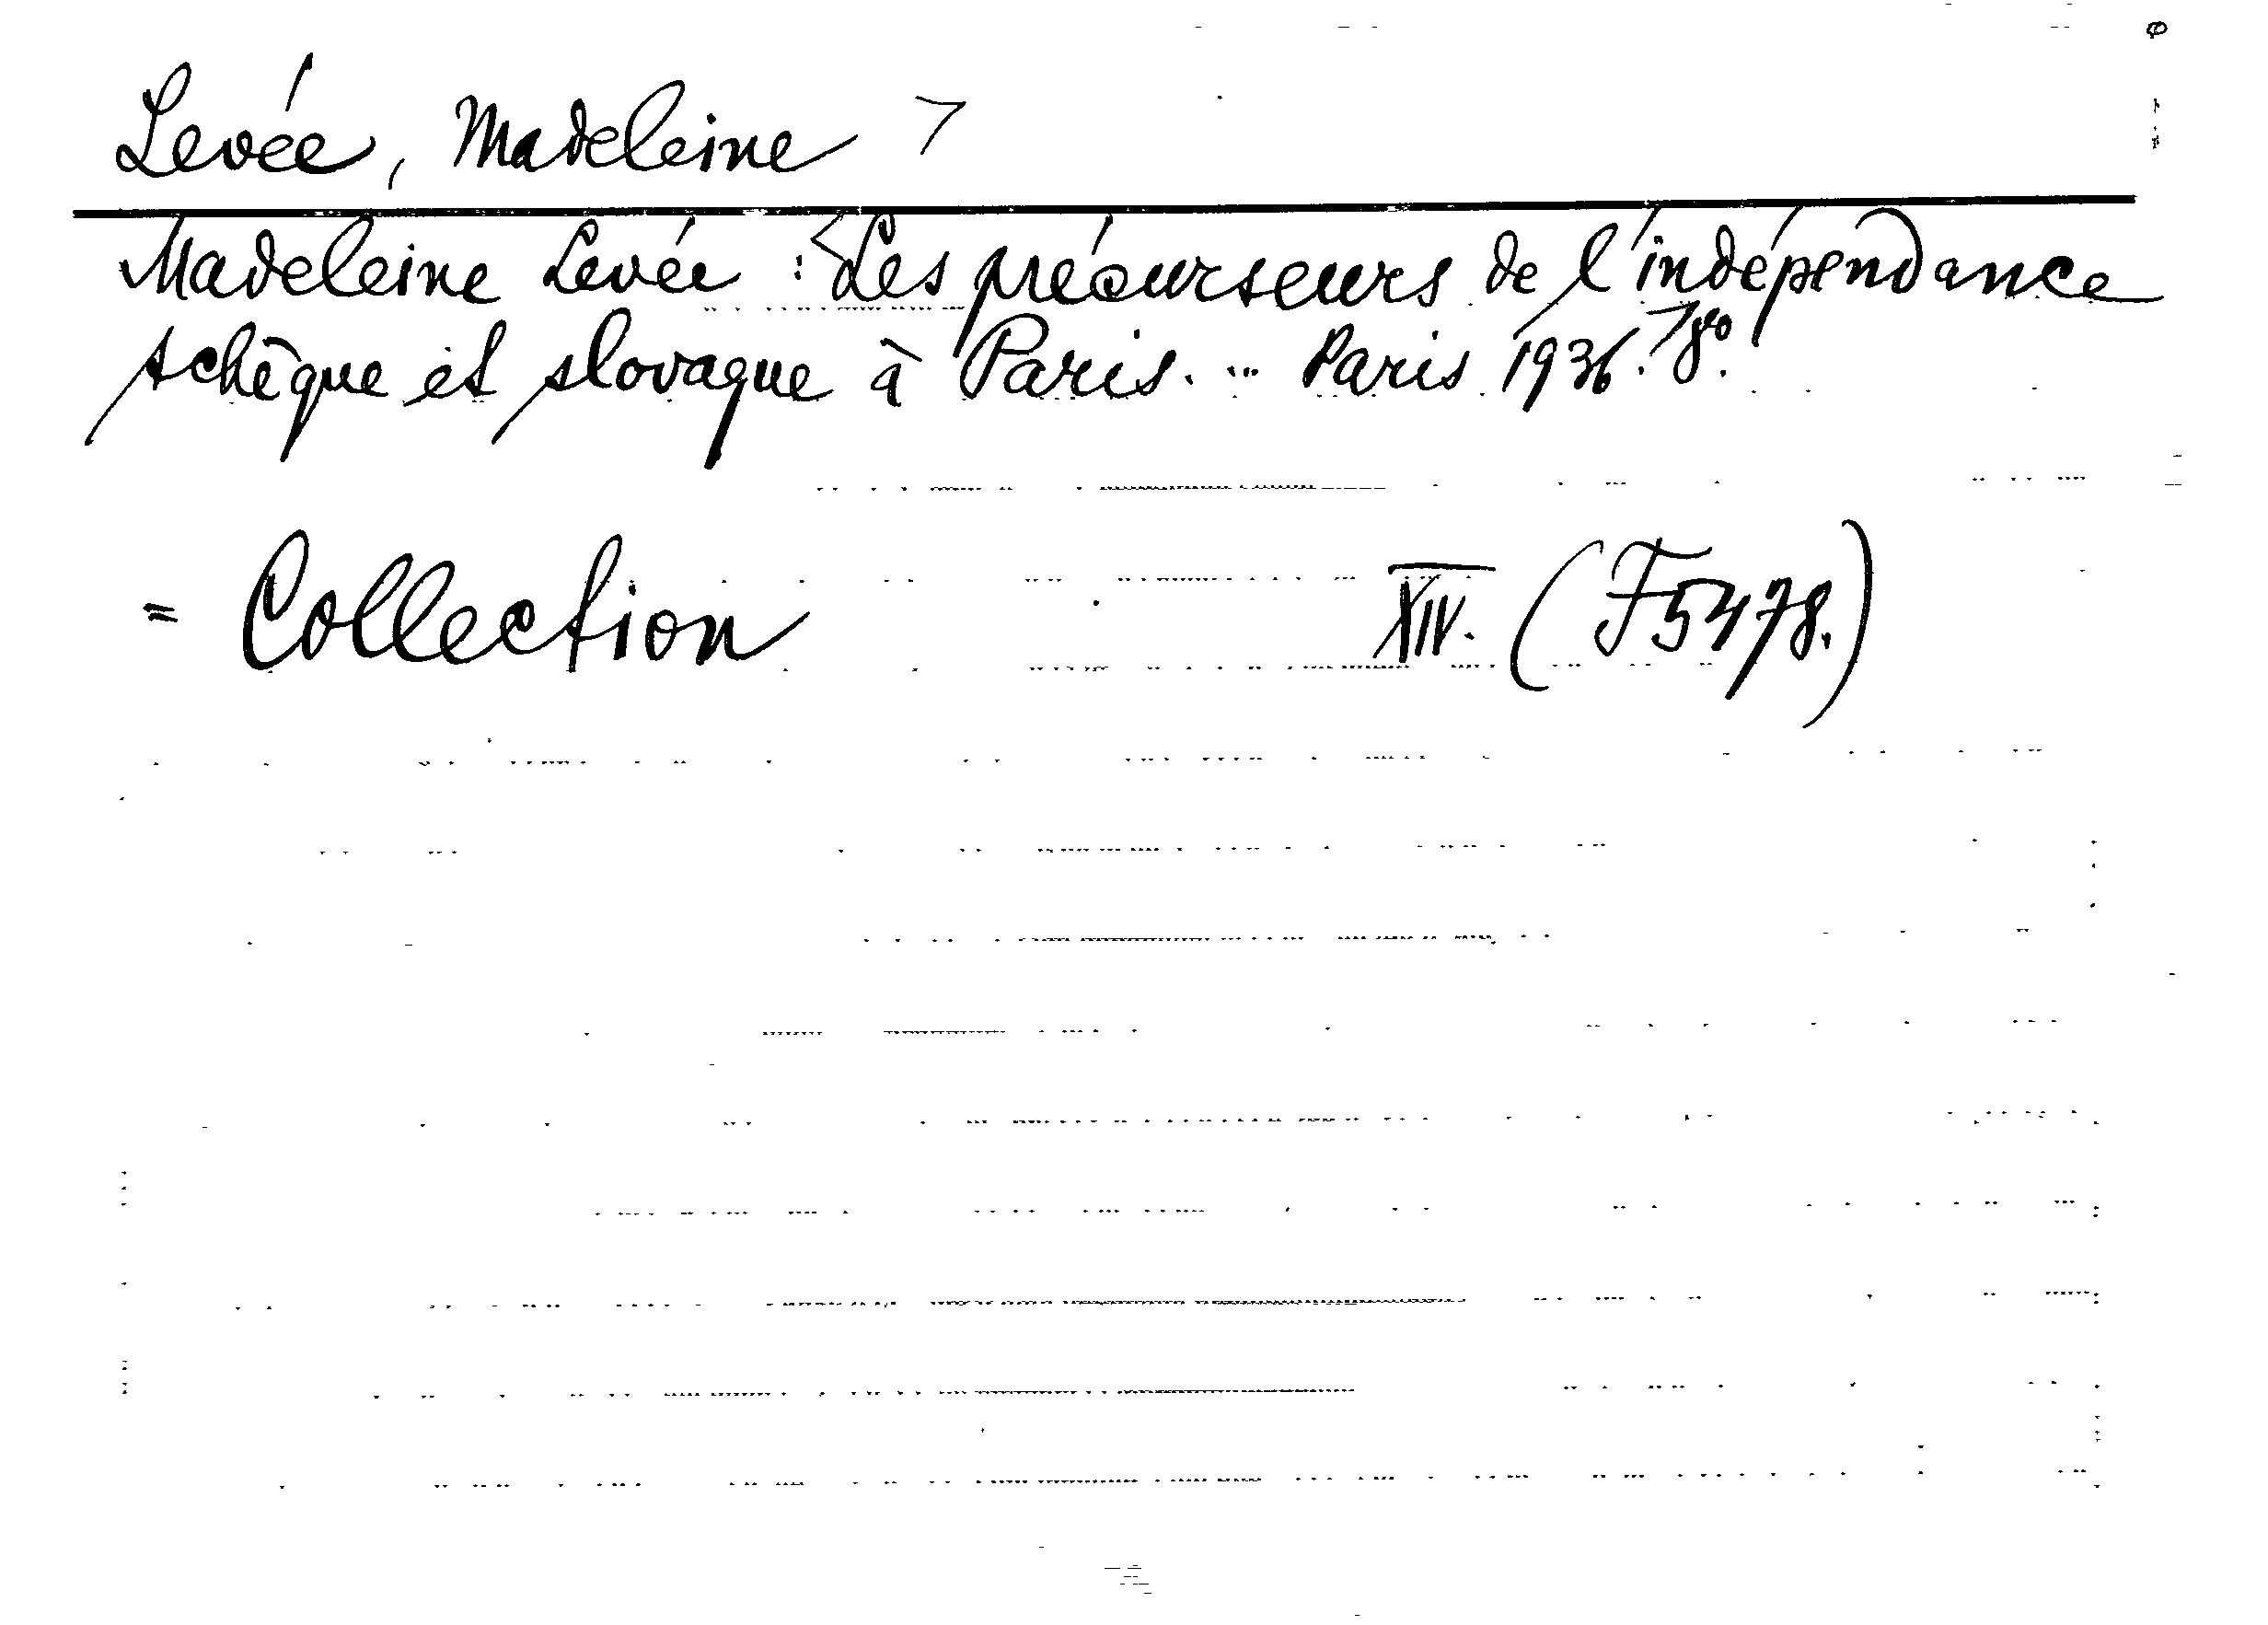 Levée, Madeleine >
Madeleine Levée : <Les précurseurs de l'indépendance
tchèque et slovaque à Paris. .. Paris 1936.> 8vo.
= Collection XIV. (F5478.)